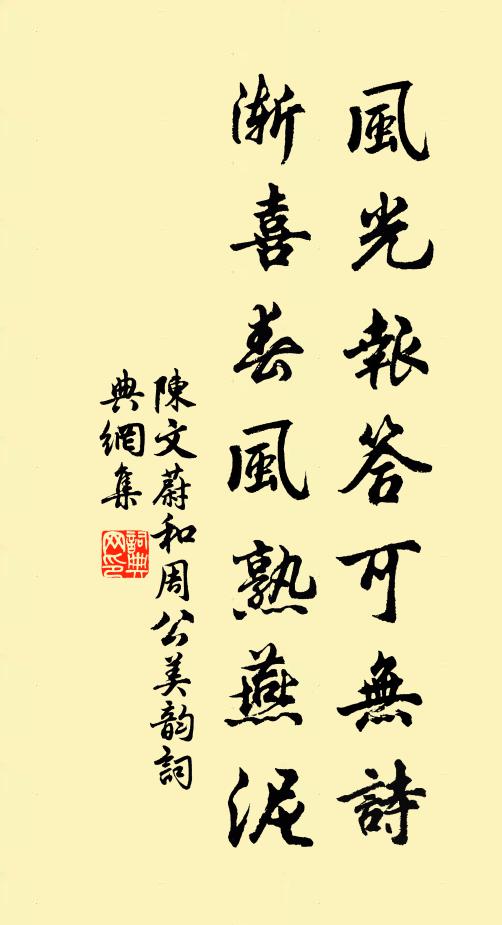 風光報答可無詩
漸喜春風熟燕泥
陳文蔚和周公美韵詞
典網集
詞典網印